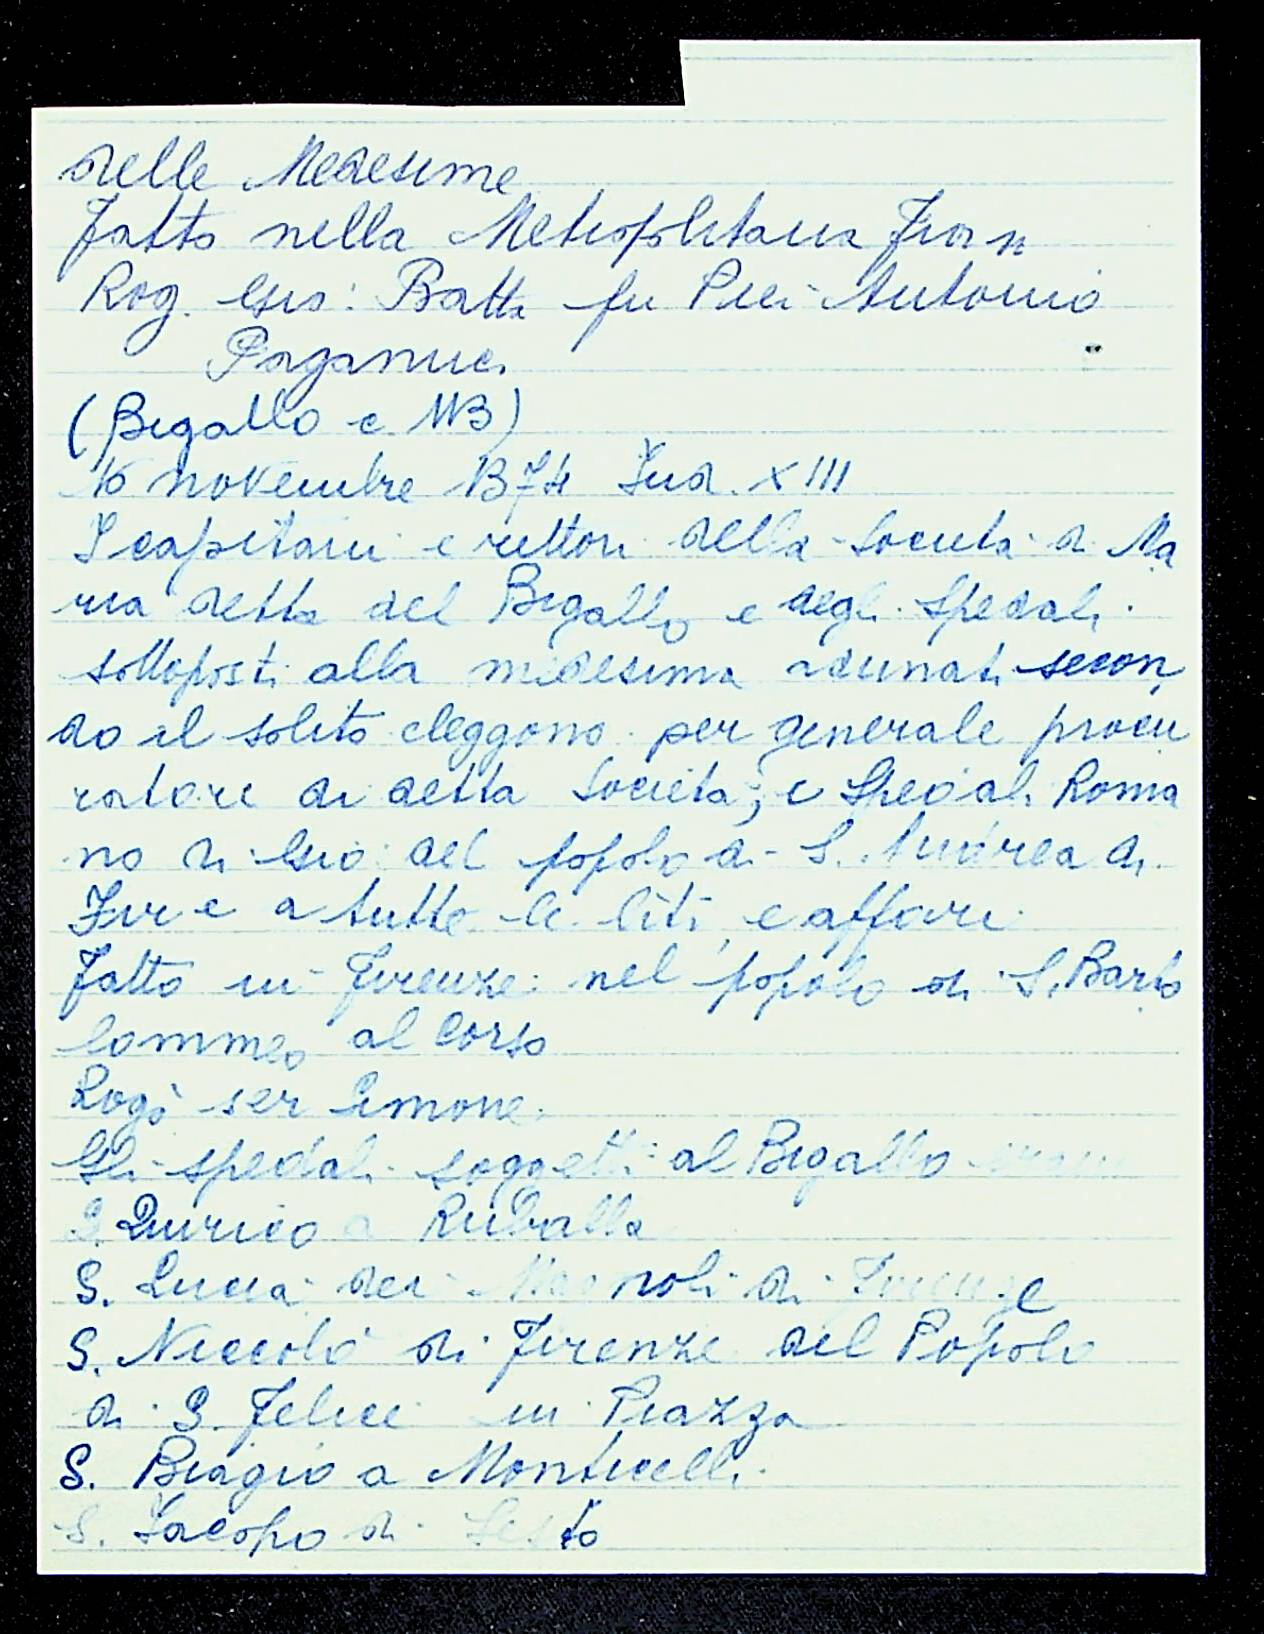 delle Medesime
fatto nella Metropolitana Fior n
Rog. Gio: Batta fu Pier Antonio
Paganucci
(Bigallo e
16 novembre 1374 Ind. XIII
I capitani e rettori della Società di Ma
ria detta del Bigallo e degli Spedali
sottoposti alla medesima adunati secon
do il solito eleggono per generale procu
ratore di detta Società, e Spedali Roma
no di Gio: del popolo di S. Andrea di
Fir e a tutte le liti, e affari
Fatto in Firenze nel popolo di S. Barto
lommeo al Corso
Rogò ser Simone
Gli spedali soggetti al Bigallo erano
S. Quirico a Ruballa
S. Lucia dei Magnoli di Firenze
S. Niccolò di Firenze del Popolo
di S. Felice in Piazza
S. Biagio a Monticelli
S. Jacopo di Sesto